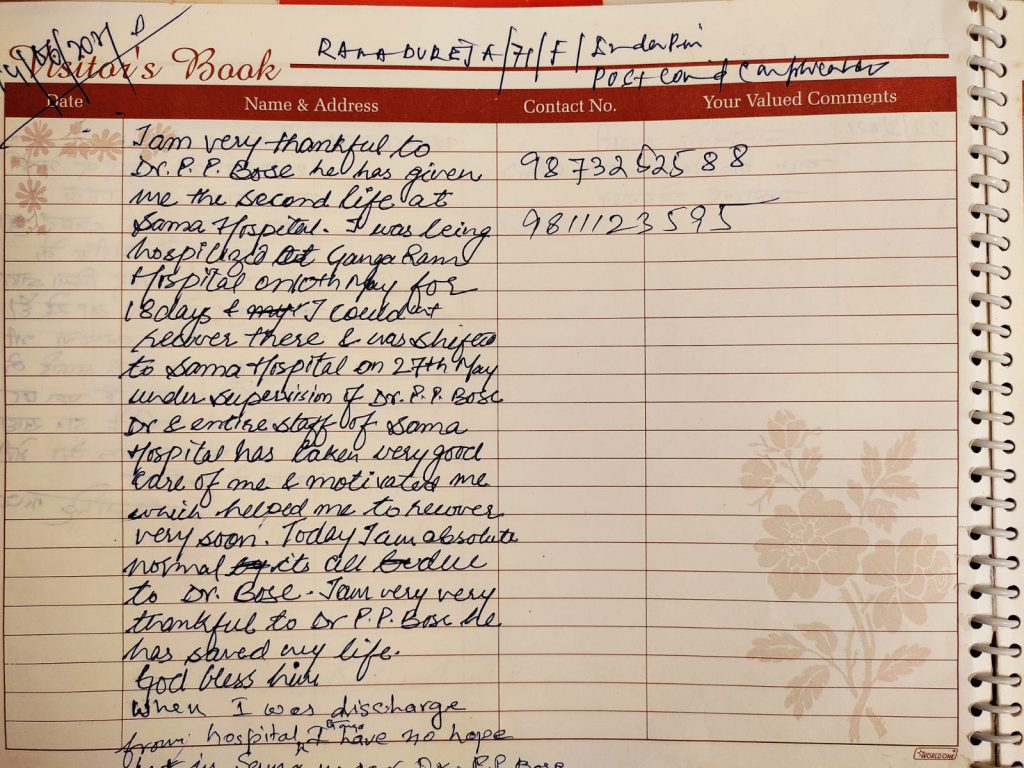 Visitor's Book
RAMA DUREJA/71/F/
Post Covid Complication
Date Name & Address Contact No. Your Valued Comments
I am very thankful to
Dr. P. P. Bose he has given 9873252588
me the second life at
Sama Hospital. I was being 9811123595
hospilized at Ganga Ram
Hospital on 10th May for
18 days & I could
recover there & was shifted
to Sama Hospital on 27th May
under supervision of Dr. P. P. Bose
Dr & entire staff of Sama
Hospital has taken very good
care of me & motivated me
which helped me to recover
very soon. Today I am absolute
normal its all due
to Dr. Bose. I am very very
thankful to Dr P. P. Bose he
has saved my life.
God bless him
When I was discharge
from hospital, I have no hope
Dr. P.P Bose
WORLDONE